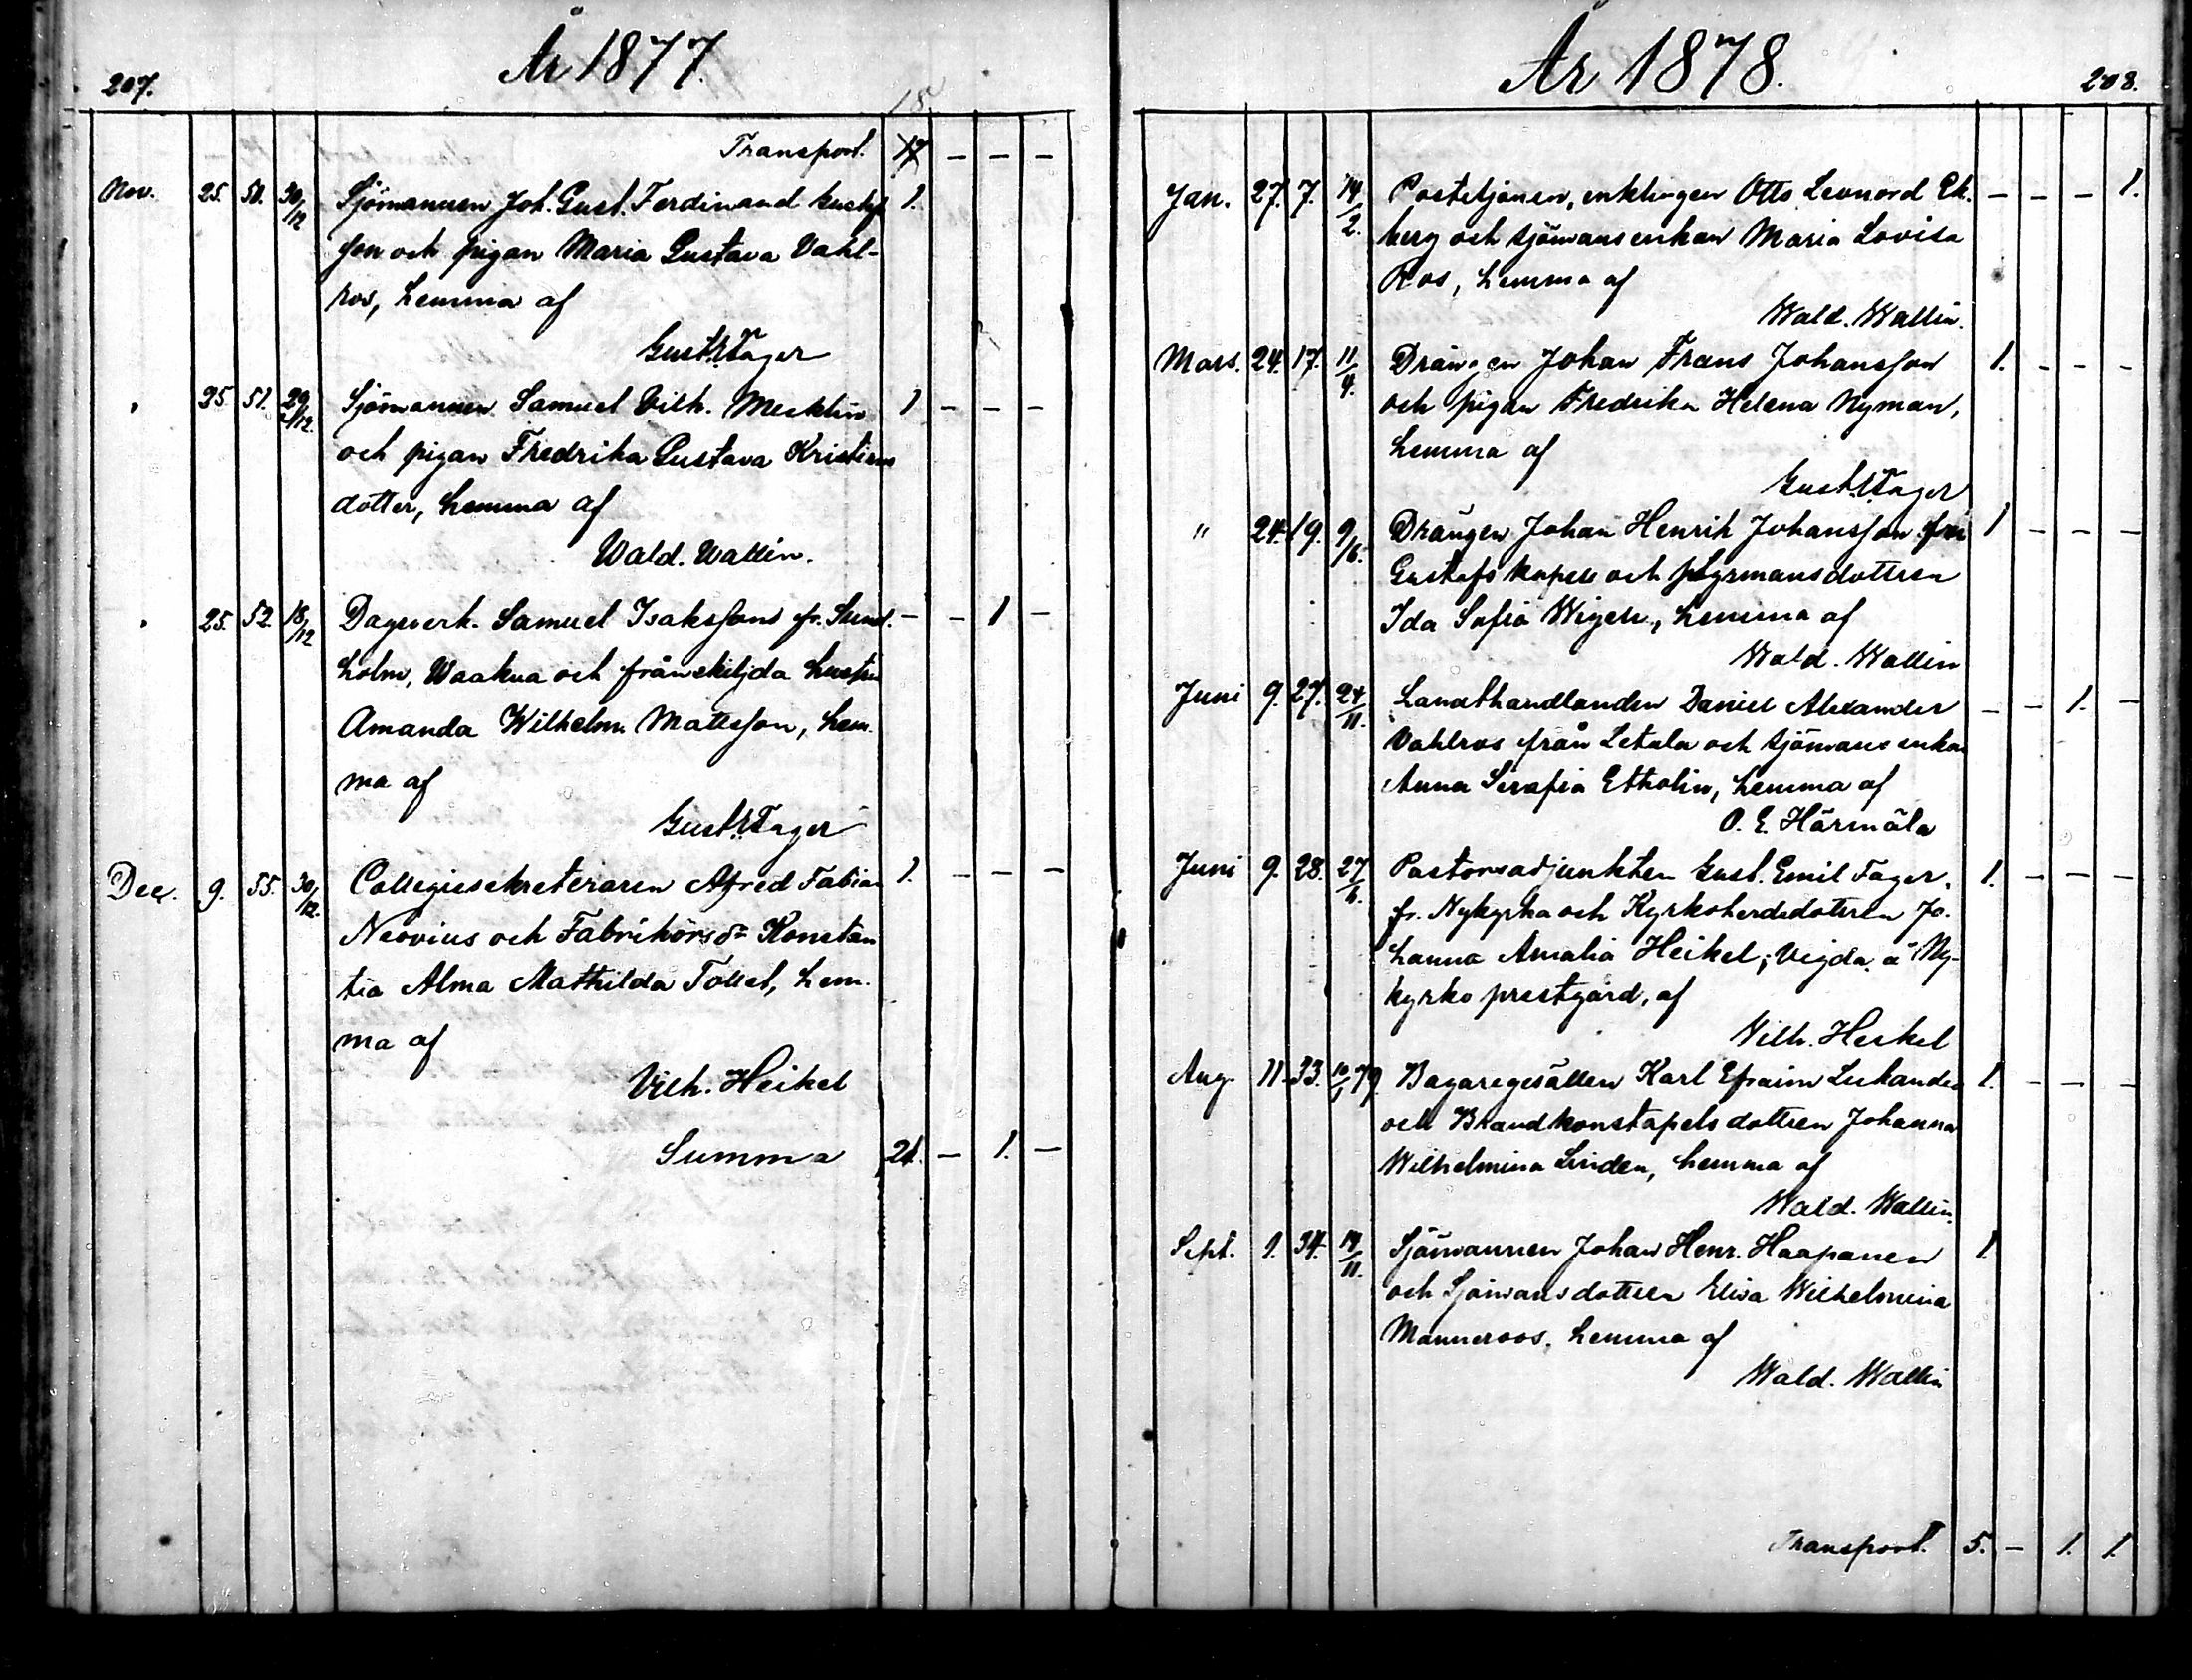 207.
År 1877.
18
Transport. 17 - - -
Nov. 25. 50. 30/12 Sjömannen Joh. Gust. Ferdinand Gustaf 1.
son och pigan Maria Gustava Vahl-
ros, hemma af
Gust. E. Fager
" 25 51. 29/12. Sjömannen Samuel Vilh. Mecklin 1 - - -
och pigan Fredrika Gustava Kristians
dotter, hemma af
Wald. Wallin.
" 25. 52. 18/12 Dagsverk. Samuel Isaksson fr. Sund. - - 1 -
holm, Waakua och frånskiljda hustru
Amanda Wilhelm. Mattsson, hem.
ma af
Gust. E. Fager
Dec. 9. 55. 30/12. Collegiesekreteraren Alfred Fabian 1. - - -
Neovius och Fabrikörsd:r Konstan
tia Alma Mathilda Tollet, hem.
ma af
Vilh. Heikel
Summa 21. - 1. -
År 1878.
208.
Jan. 27. 7. 14/2. Postiljonen, enklingen Otto Leonard Ek. - - - 1.
berg och sjömansenkan Maria Lovisa
Ros, hemma af
Wald. Wallin.
Mars. 24. 17. 11/4. Drängen Johan Frans Johansson 1. - - -
och pigan Fredrika Helena Nyman,
hemma af
Gust. E. Fager
" 24. 19. 9/6. Drängen Johan Henrik Johansson från 1 - - -
Gustafs kapell och styrmansdottren
Ida Sofia Wigell, hemma af
Wald. Wallin
Juni 9. 27. 24/11. Landthandlanden Daniel Alexander - - 1. -
Vahlros från Letala och sjömans enkan
Anna Serafia Etholin, hemma af
O. E. Härmälä
Juni 9. 28. 27/6. Pastorsadjunkten Gust. Emil Fager, 1. - - -
fr. Nykyrka och Kyrkoherdedottren Jo.
hanna Amalia Heikel; Vigda å Ny-
kyrko prestgård, af
Vilh. Heikel
Aug. 11. 33. 10/1 79. Bagaregesällen Karl Efraim Lukander 1. - - -
och Brandkonstapelsdottren Johanna
Wilhelmina Linden, hemma af
Wald. Wallin.
Sept. 1. 34. 14/11. Sjömannen Johan Henr. Haapanen 1
och Sjömansdottren Elisa Wilhelmina
Manneroos, hemma af
Wald. Wallin
Transport. 5. - 1. 1.